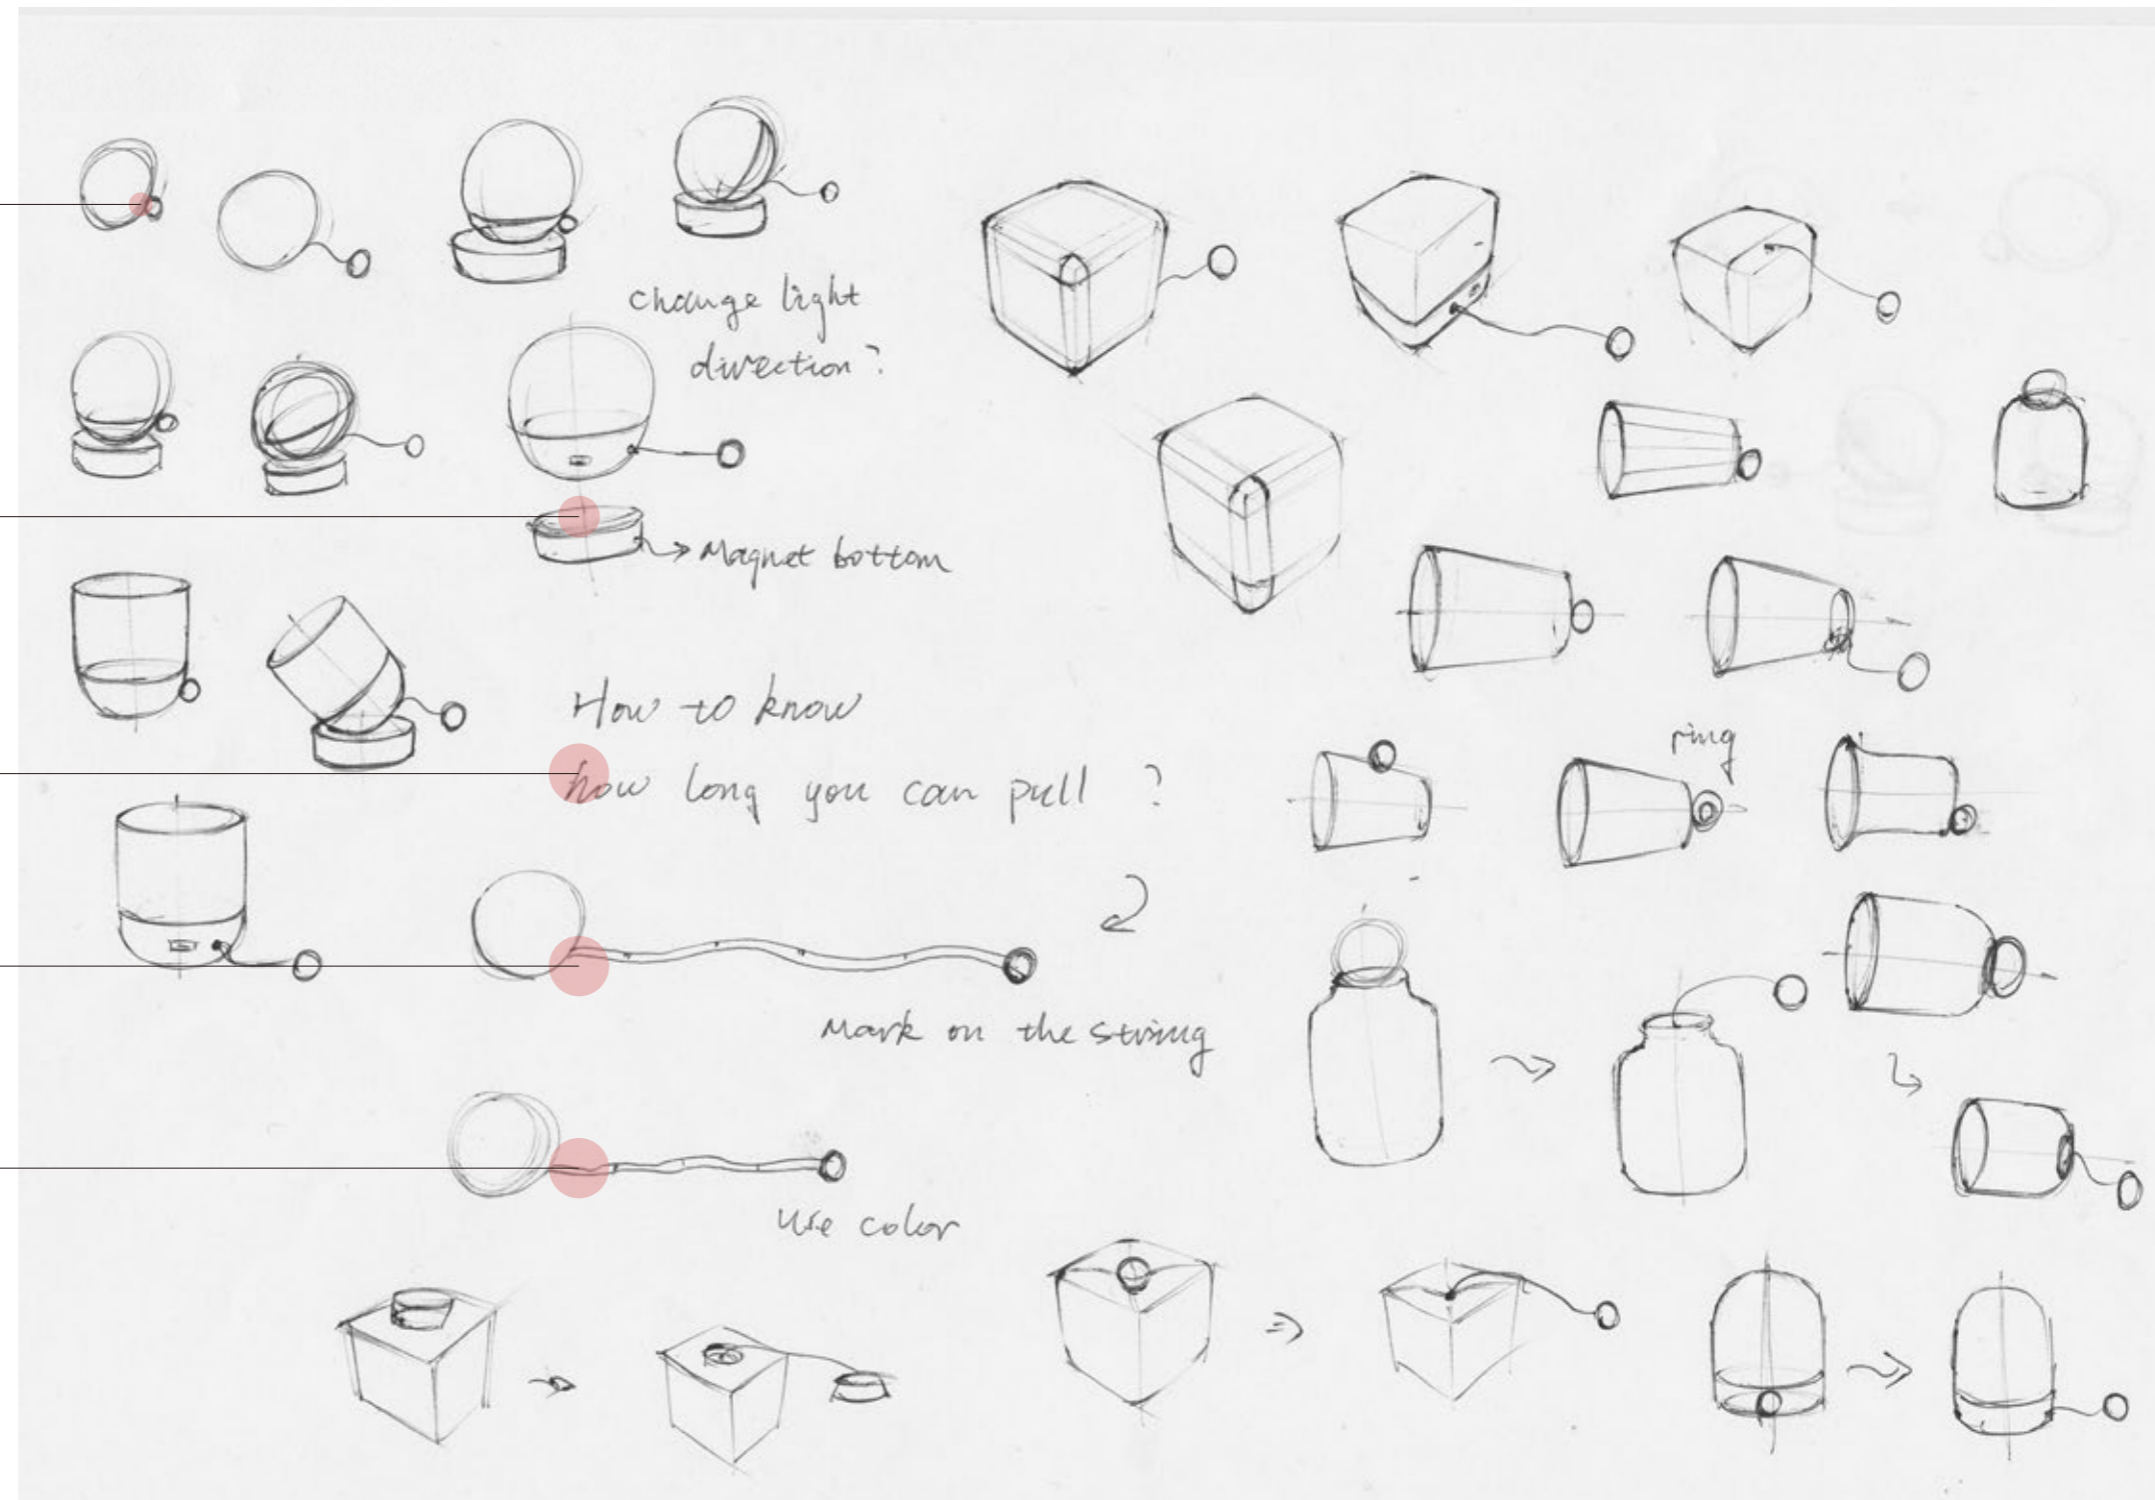 change light
direction?
Magnet bottom
How to know
how long you can pull ?
ring
Mark on the string
Use color